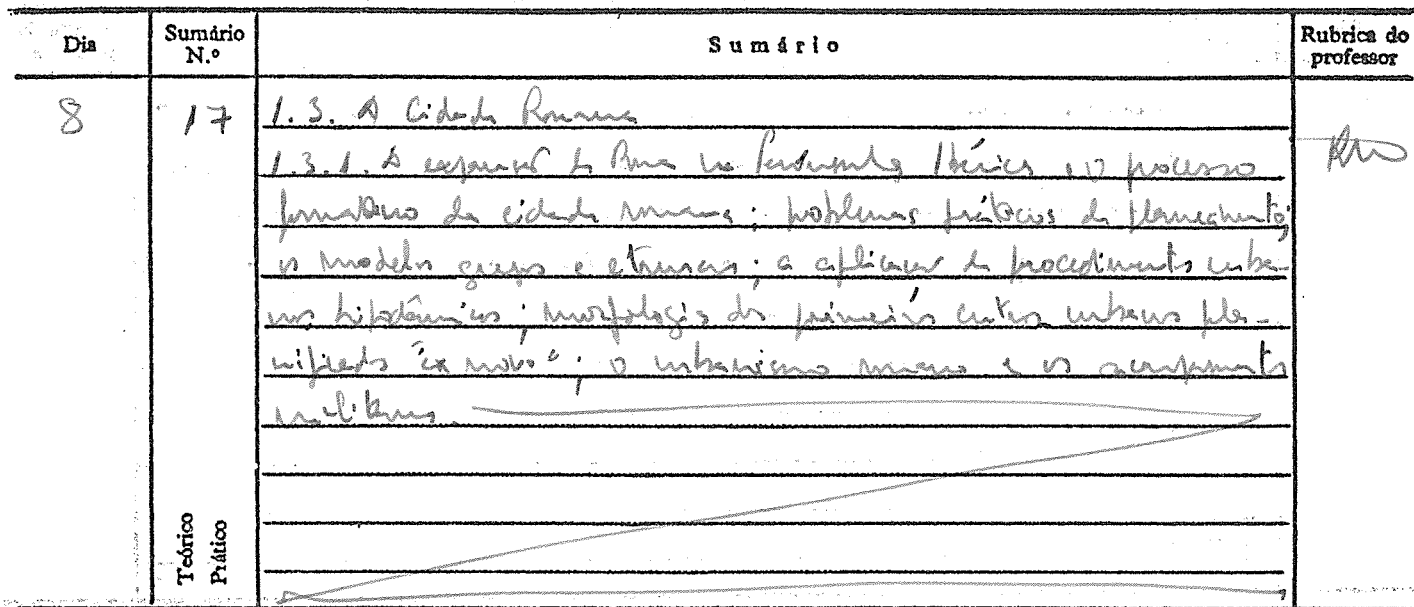 Dia
Sumário N.º
Sumário
Rubrica do professor
8
17
1.3. A Cidade Romana
1.3.1. A expansão de Roma na Península Ibérica e o processo
formativo da cidade romana; problemas práticos de planeamento;
os modelos gregos e etruscos; a aplicação de procedimentos urba-
nos hipodâmicos; morfologia dos primeiros centros urbanos pla-
nificados "ex novo"; o urbanismo romano e os acampamentos
militares.
Teórico
Prático